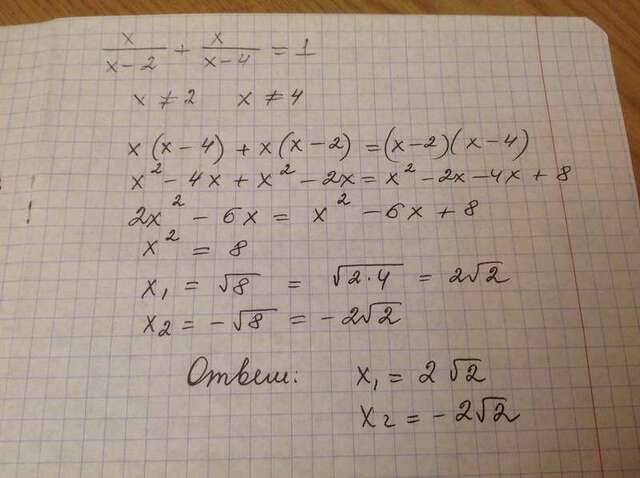 x/(x-2) + x/(x-4) = 1
x ≠ 2 x ≠ 4
x(x-4) + x(x-2) = (x-2)(x-4)
x² - 4x + x² - 2x = x² - 2x - 4x + 8
2x² - 6x = x² - 6x + 8
x² = 8
x₁ = √8 = √2·4 = 2√2
x₂ = -√8 = -2√2
Ответ: x₁ = 2√2
x₂ = -2√2
!